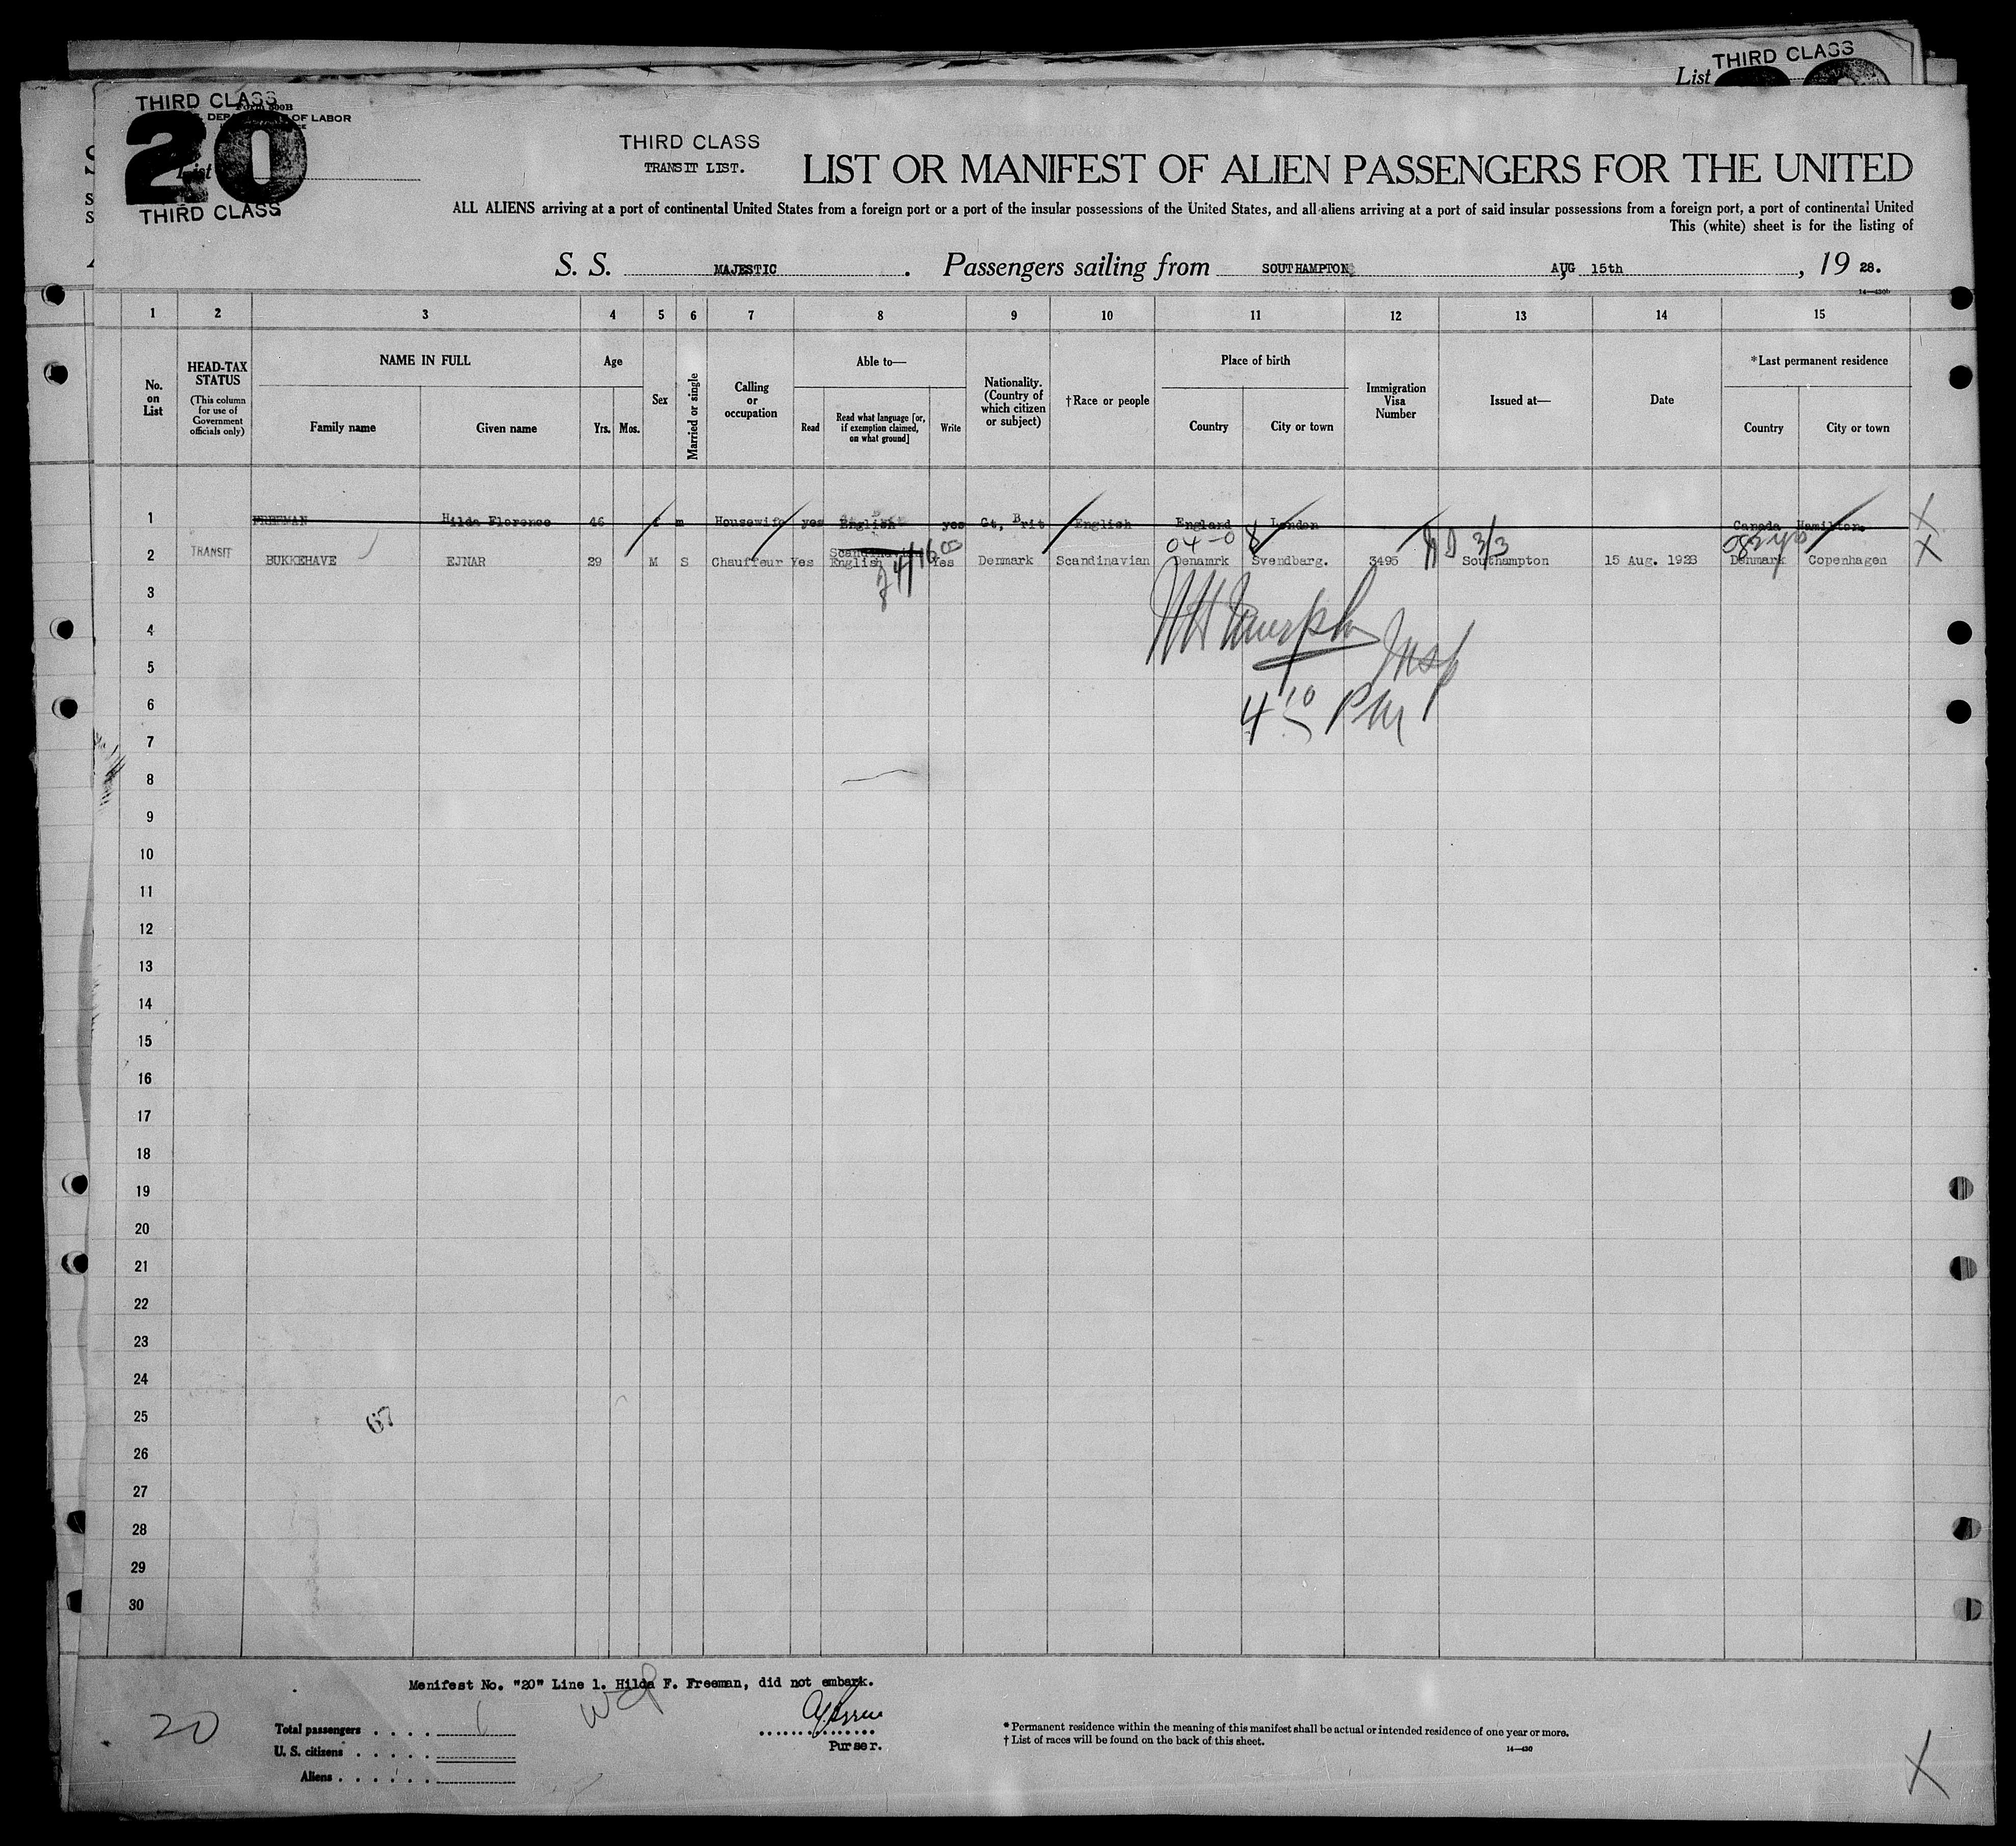 THIRD CLASS
List
THIRD CLASS
Form 500B
OF LABOR
20
List
THIRD CLASS
THIRD CLASS
TRANSIT LIST.
LIST OR MANIFEST OF ALIEN PASSENGERS FOR THE UNITED
ALL ALIENS arriving at a port of continental United States from a foreign port or a port of the insular possessions of the United States, and all aliens arriving at a port of said insular possessions from a foreign port, a port of continental United
This (white) sheet is for the listing of
S. S. MAJESTIC. Passengers sailing from SOUTHAMPTON AUG 15th, 19 28.
14—430b
1 2 3 4 5 6 7 8 9 10 11 12 13 14 15
No. on List
HEAD-TAX STATUS
(This column for use of Government officials only)
NAME IN FULL
Family name
Given name
Age
Yrs.
Mos.
Sex
Married or single
Calling or occupation
Able to—
Read
Read what language [or, if exemption claimed, on what ground]
Write
Nationality. (Country of which citizen or subject)
†Race or people
Place of birth
Country
City or town
Immigration Visa Number
Issued at—
Date
*Last permanent residence
Country
City or town
1 FREEMAN Hilda Florence 46 f m Housewife yes English yes Gt, Brit English England London Canada Hamilton. X
04-0 8 ND 3/3
2 TRANSIT BUKKEHAVE EJNAR 29 M S Chauffeur Yes Scandinavian English Yes Denmark Scandinavian Denamrk Svendbarg. 3495 Southampton 15 Aug. 1928 Denmark Copenhagen X
3
4
Insp
5
6
4 10 PM
7
8
9
10
11
12
13
14
15
16
17
18
19
20
21
22
23
24
25
67
26
27
28
29
30
Menifest No. "20" Line 1. Hilda F. Freeman, did not embark.
20
Total passengers . . . . 1
U. S. citizens . . . . .
Aliens . . . . . .
Purser.
* Permanent residence within the meaning of this manifest shall be actual or intended residence of one year or more.
† List of races will be found on the back of this sheet.
14—430
X